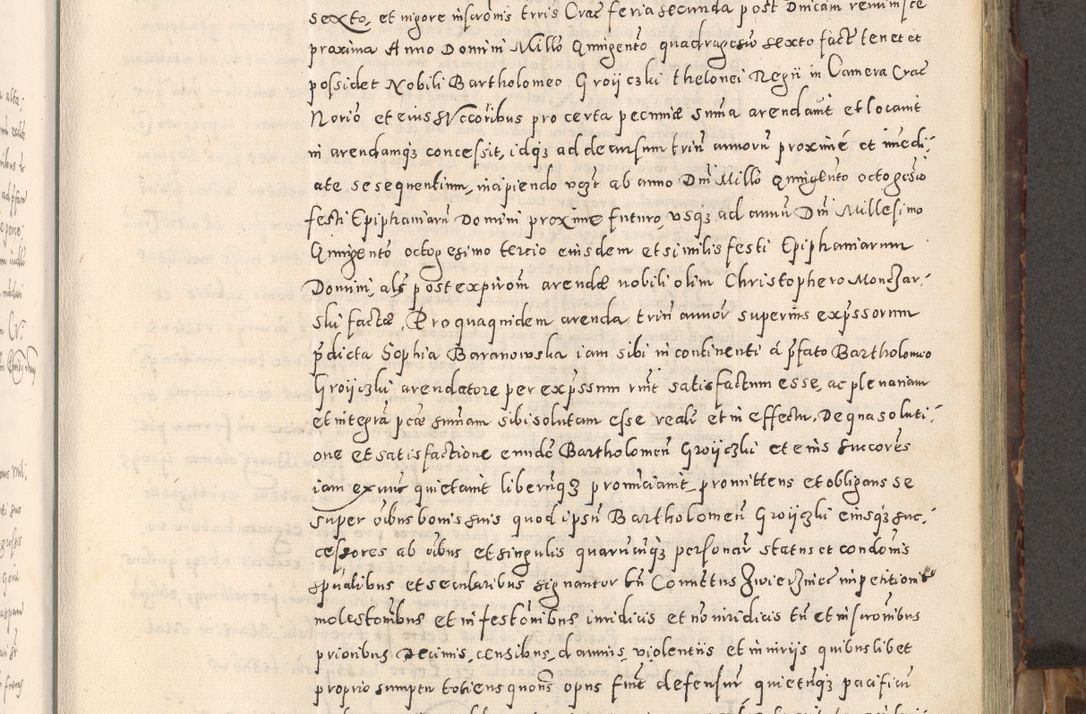 sexto, et vigore inscronis trris Crac feria secunda post Dnicam reminisce
proxima Anno Domini Millo Quingento quadragesio sexto fact tenet et
possidet Nobili Bartholomeo Groijczki thelonei Regii in Camera Crac
Norio et eius succoribus pro certa pecuniæ suma arendavit et locavit
in arendamqz concessit, idqz ad decursum triu annoru proxime et imedi,
ate se sequentium, incipiendo vegt ab anno Dni Millo Quingento octogesio
festi Epiphaniaru Domini proxime futuro, usqz ad annu Dni Millesimo
Quingento octogesimo tercio eiusdem et similis festi Epiphaniarum
Domini, als post expirom arendæ nobili olim Christophero Monczar,
ski factæ, Pro qua quidem arenda triu annor superius expssorum
pdicta Sophia Baranowska iam sibi in continenti á pfato Bartholomeo
Groijczki arendatore per expssum satisfactum esse, ac plenariam
et integrá summam sibi solutam esse reali et in effectu, De qua soluti,
one et satisfactione eundé Bartholomeu Groijczki et eius succores
iam ex nunc quietavit liberuqz pronuciavit promittens et obligans se
super oibus bonis suis quod ipsu Bartholomeu Groijczki eiusqz suc,
cessores ab oibus et singulis quarucuqz personar status et condonis
spualibus et secularibus signantur Comittus impetitioni
molestonibus et infestonibus iuridicis et no iuridicis tu et inscronibus
prioribus Decimis, censibus, damnis, violentiis et iniuriis quibuslibet
proprio sumptu totiens quons opus fuit defensur quietuqz pacificu